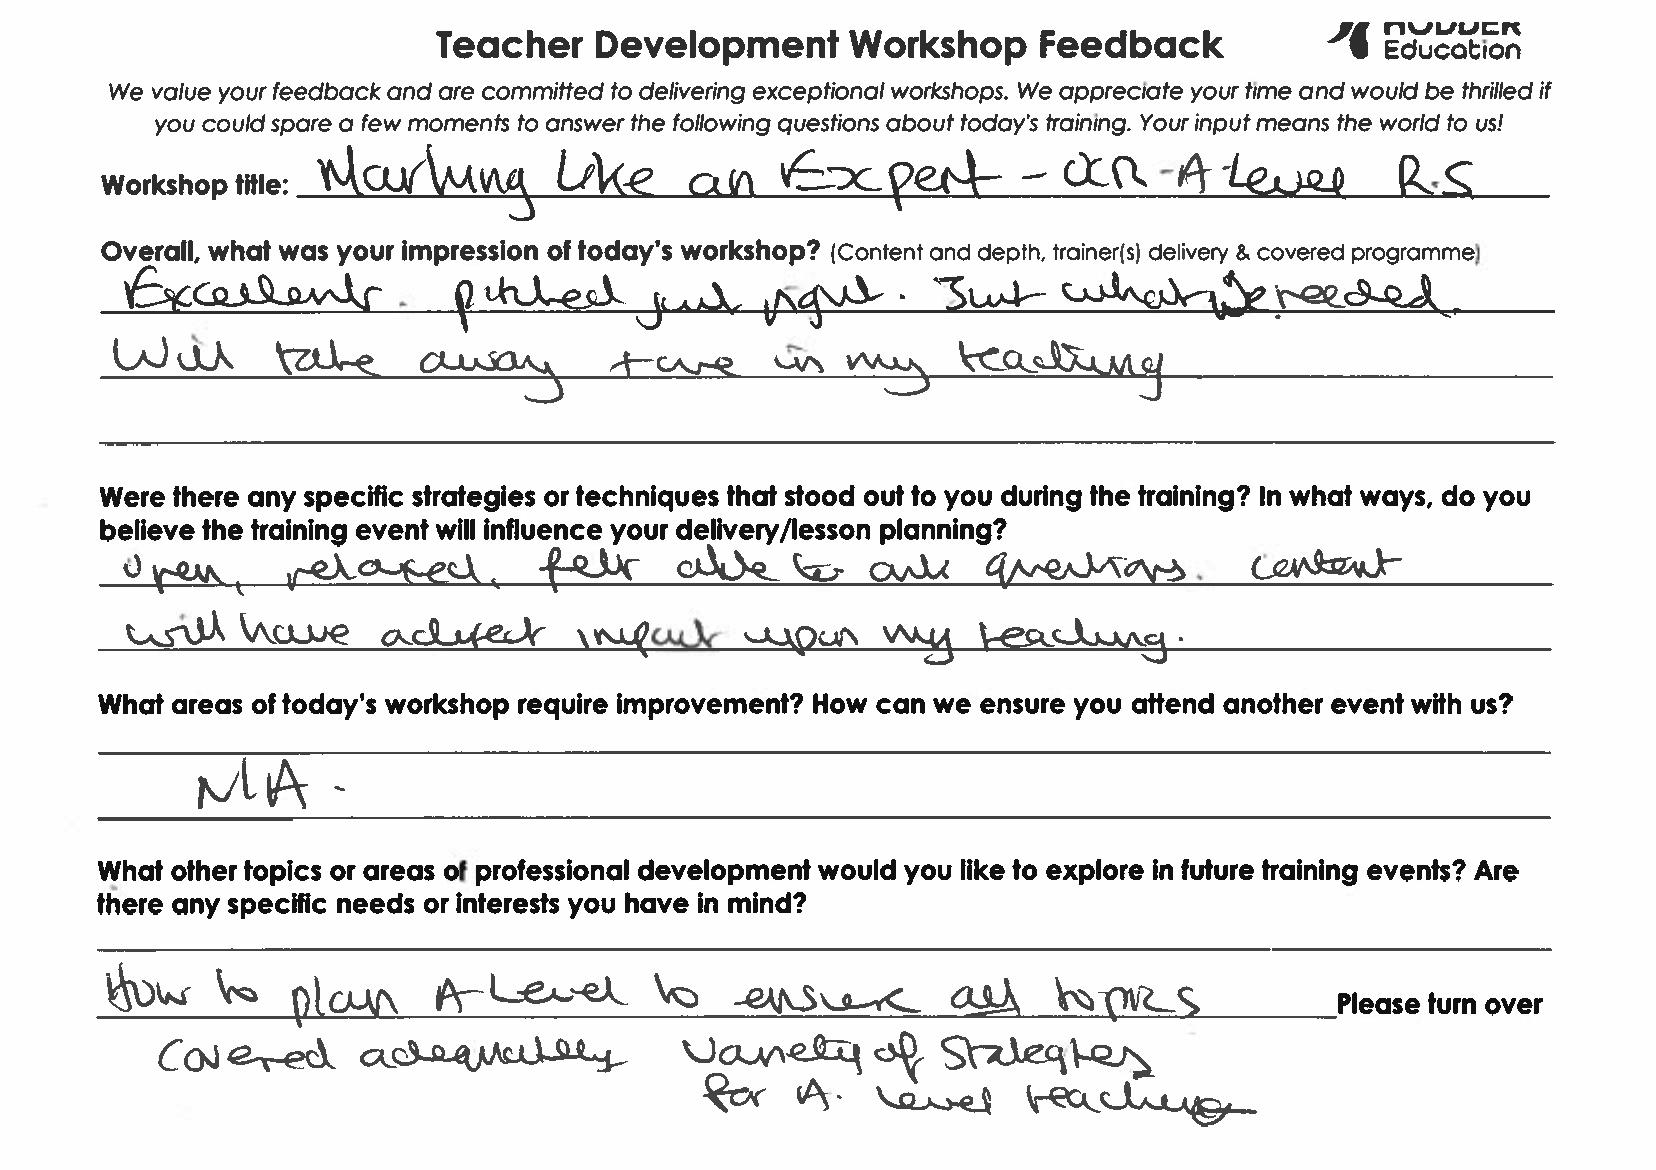 Teacher Development Workshop Feedback
HODDER
Education
We value your feedback and are committed to delivering exceptional workshops. We appreciate your time and would be thrilled if
you could spare a few moments to answer the following questions about today's training. Your input means the world to us!
Workshop title: Marking Like an Expert - OCR - A Level R.S
Overall, what was your impression of today's workshop? (Content and depth, trainer(s) delivery & covered programme)
Excellent. pitched just right. Just what needed.
Will take away + use in my teaching
Were there any specific strategies or techniques that stood out to you during the training? In what ways, do you
believe the training event will influence your delivery/lesson planning?
Open, relaxed, felt able to ask questions. Content
will have a direct impact upon my teaching.
What areas of today's workshop require improvement? How can we ensure you attend another event with us?
N/A.
What other topics or areas of professional development would you like to explore in future training events? Are
there any specific needs or interests you have in mind?
How to plan A-Level to ensure all topics
Please turn over
Covered adequately Variety of Strategies
for A. Level teaching